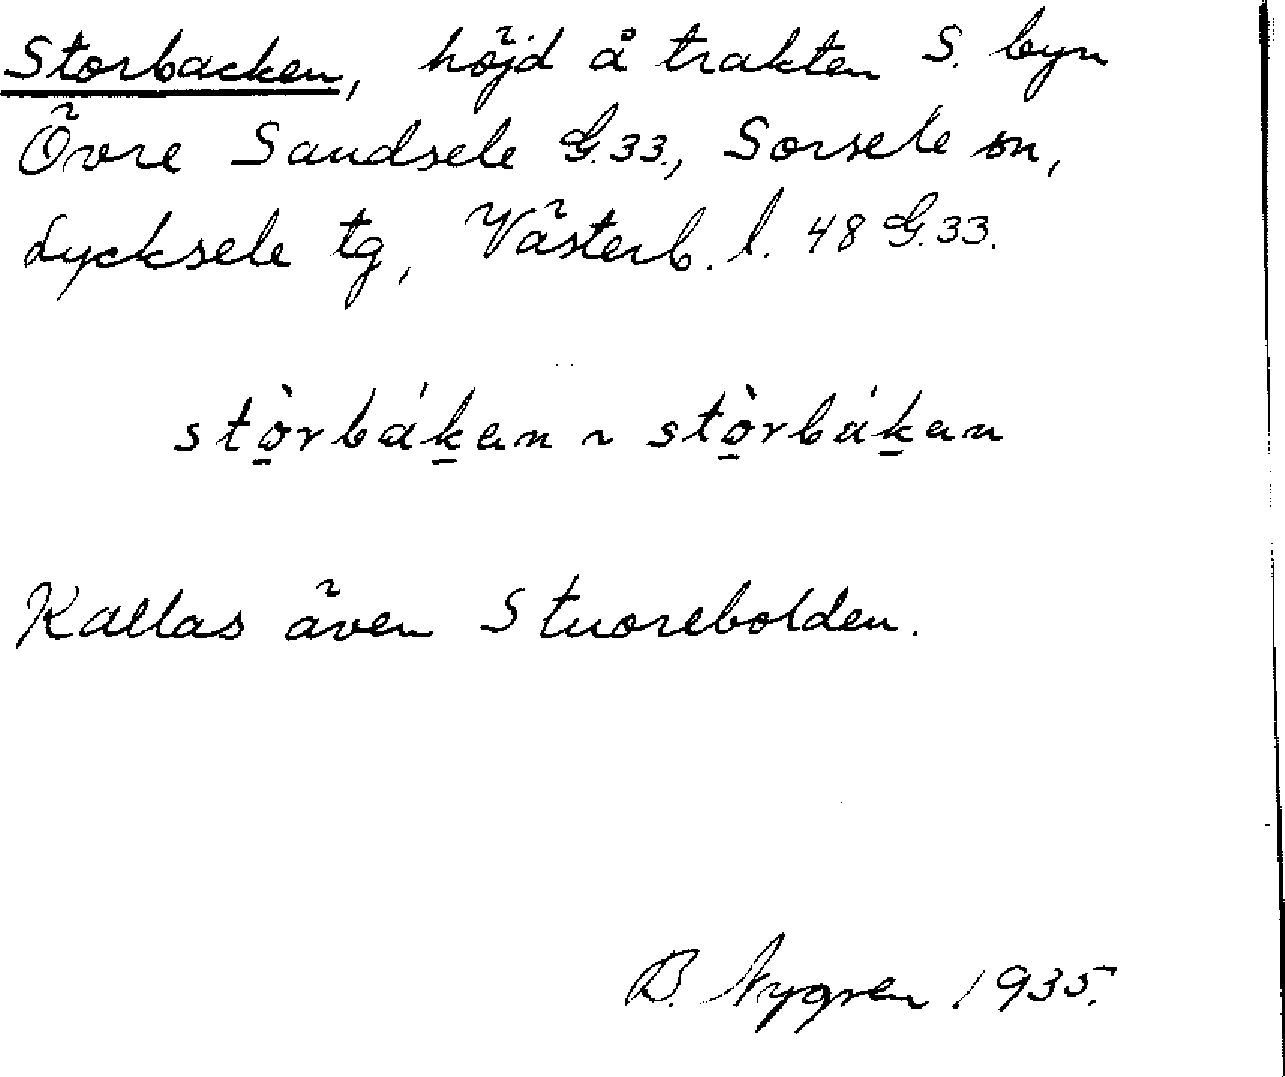 Storbacken, höjd å trakten S. byn
Övre Sandsele G.33., Sorsele sn,
Lycksele tg, Västerb. l. 48 G.33.
stò̱rbáḵen ~ stò̱rbáḵan
Kallas även Stuorebolden.
B. Nygren 1935.